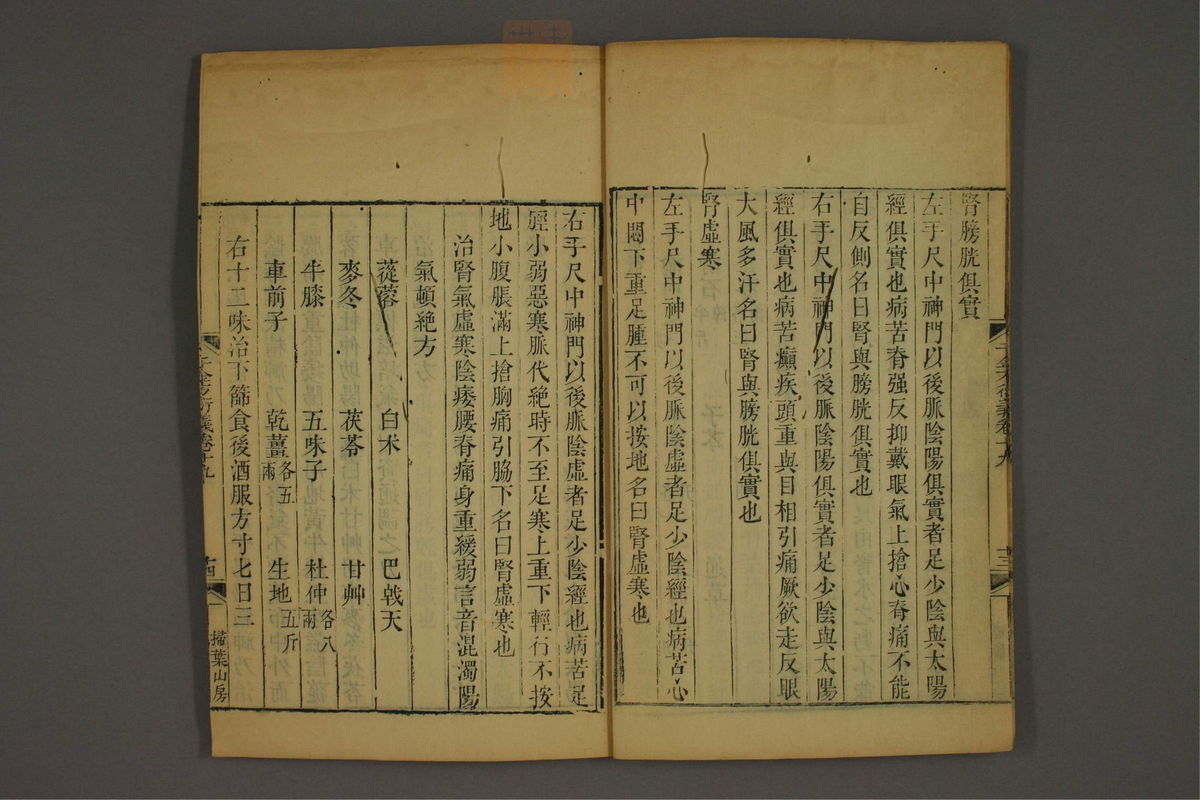 腎膀胱俱實
左手尺中神門以後脈陰陽俱實者足少陰與太陽
經俱實也病苦脊强反抑戴眼氣上搶心脊痛不能
自反側名曰腎與膀胱俱實也
右手尺中神門以後脈陰陽俱實者足少陰與太陽
經俱實也病苦癲疾頭重與目相引痛厥欲走反眼
大風多汗名曰腎與膀胱俱實也
腎虛寒
左手尺中神門以後脈陰虛者足少陰經也病苦心
中悶下重足腫不可以按地名曰腎虛寒也
右手尺中神門以後脈陰虛者足少陰經也病苦足
脛小弱惡寒脈代絶時不至足寒上重下輕行不按
地小腹脹滿上搶胸痛引脇下名曰腎虛寒也
治腎氣虛寒陰痿腰脊痛身重緩弱言音混濁陽
氣頓絶方
蓯蓉 白朮 巴戟天
麥冬 茯苓 甘艸
牛膝 五味子 杜仲各八兩
車前子 乾薑各五兩 生地五斤
右十二味治下篩食後酒服方寸匕日三
千金方衍義卷十九
十四
掃葉山房